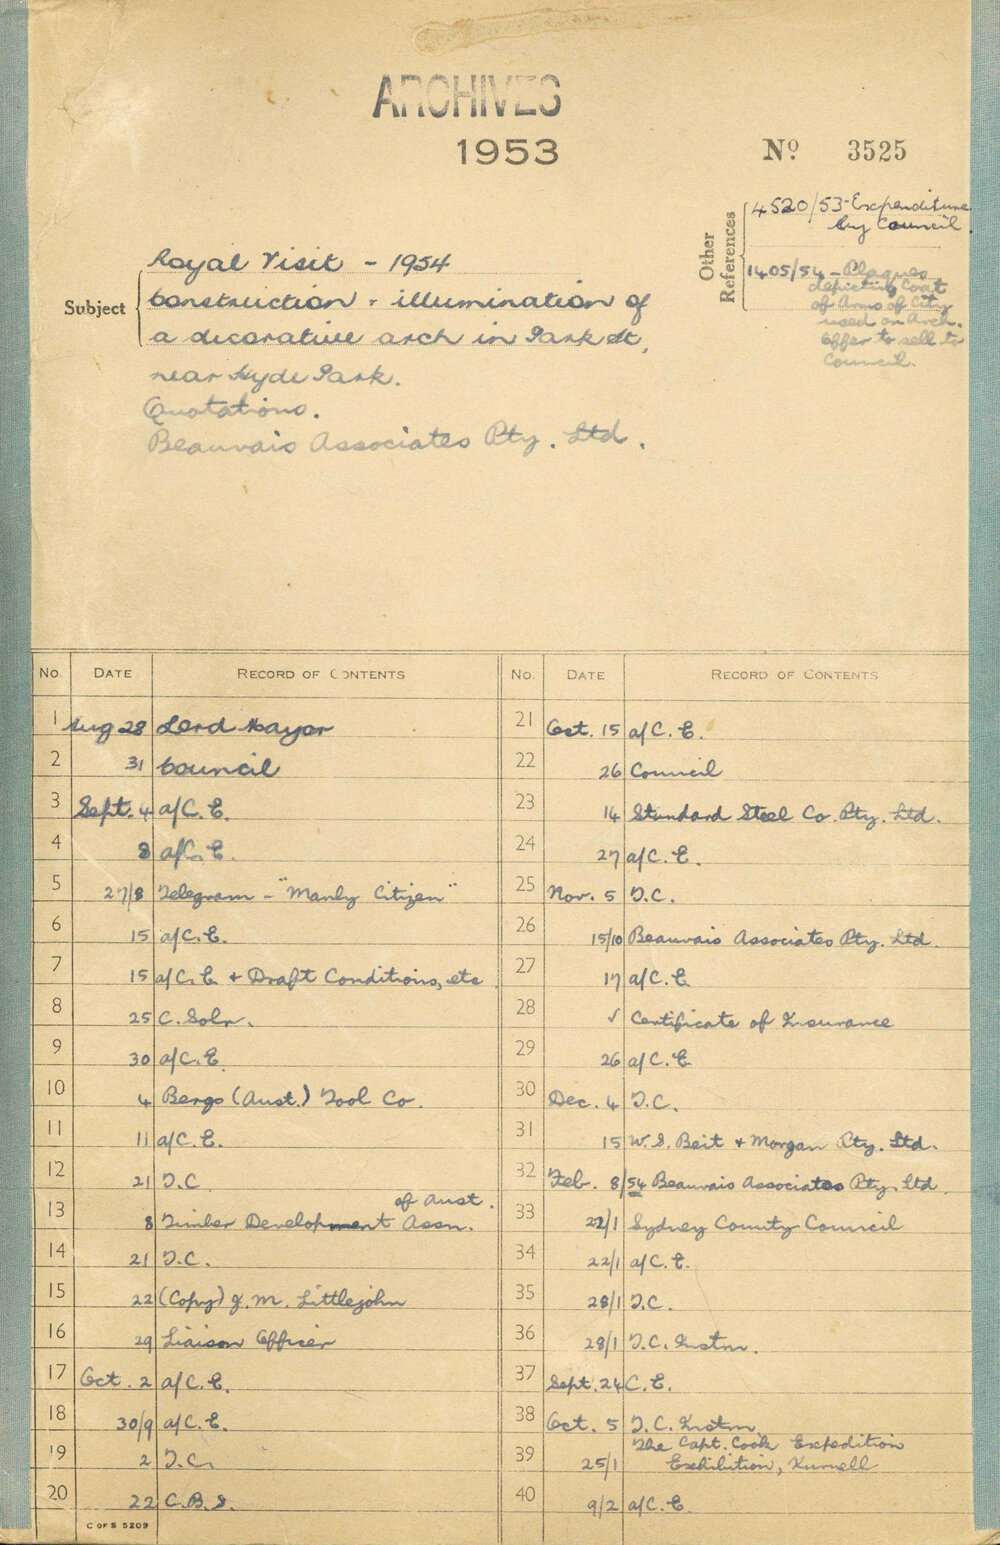 ARCHIVES
1953
Nº 3525
Other References
4520/53-Expenditure
by Council.
1405/54 - Plaques
depicting Coat
of Arms of City
used on Arch.
Offer to sell to
Council.
Subject
Royal Visit - 1954
Construction & illumination of
a decorative arch in Park St,
near Hyde Park.
Quotations.
Beauvais Associates Pty. Ltd.
No. DATE RECORD OF CONTENTS
1 Aug 28 Lord Mayor
2 31 Council
3 Sept. 4 a/C.E.
4 8 a/C.E.
5 27/8 Telegram - "Manly Citizen"
6 15 a/C.E.
7 15 a/C.E. + Draft Conditions, etc
8 25 C. Solr.
9 30 a/C.E.
10 4 Bergs (Aust.) Tool Co.
11 11 a/C.E.
12 21 T.C.
13 8 Timber Development Assn. of Aust.
14 21 T.C.
15 22 (Copy) J. M. Littlejohn
16 29 Liaison Officer
17 Oct. 2 a/C.E.
18 30/9 a/C.E.
19 2 T.C.
20 22 C.B.S.
C OF S 5209
No. DATE RECORD OF CONTENTS
21 Oct. 15 a/C.E.
22 26 Council
23 14 Standard Steel Co. Pty. Ltd.
24 27 a/C.E.
25 Nov. 5 T.C.
26 15/10 Beauvais Associates Pty. Ltd.
27 17 a/C.E
28 ✓ Certificate of Insurance
29 26 a/C.E
30 Dec. 4 T.C.
31 15 W. S. Beit + Morgan Pty. Ltd.
32 Feb. 8/54 Beauvais Associates Pty. Ltd
33 22/1 Sydney County Council
34 22/1 a/C.E.
35 28/1 T.C.
36 28/1 T.C. Instn.
37 Sept. 24 C.E.
38 Oct. 5 T.C. Instn
39 25/1 The Capt. Cook Expedition
Exhibition, Kurnell
40 9/2 a/C.E.